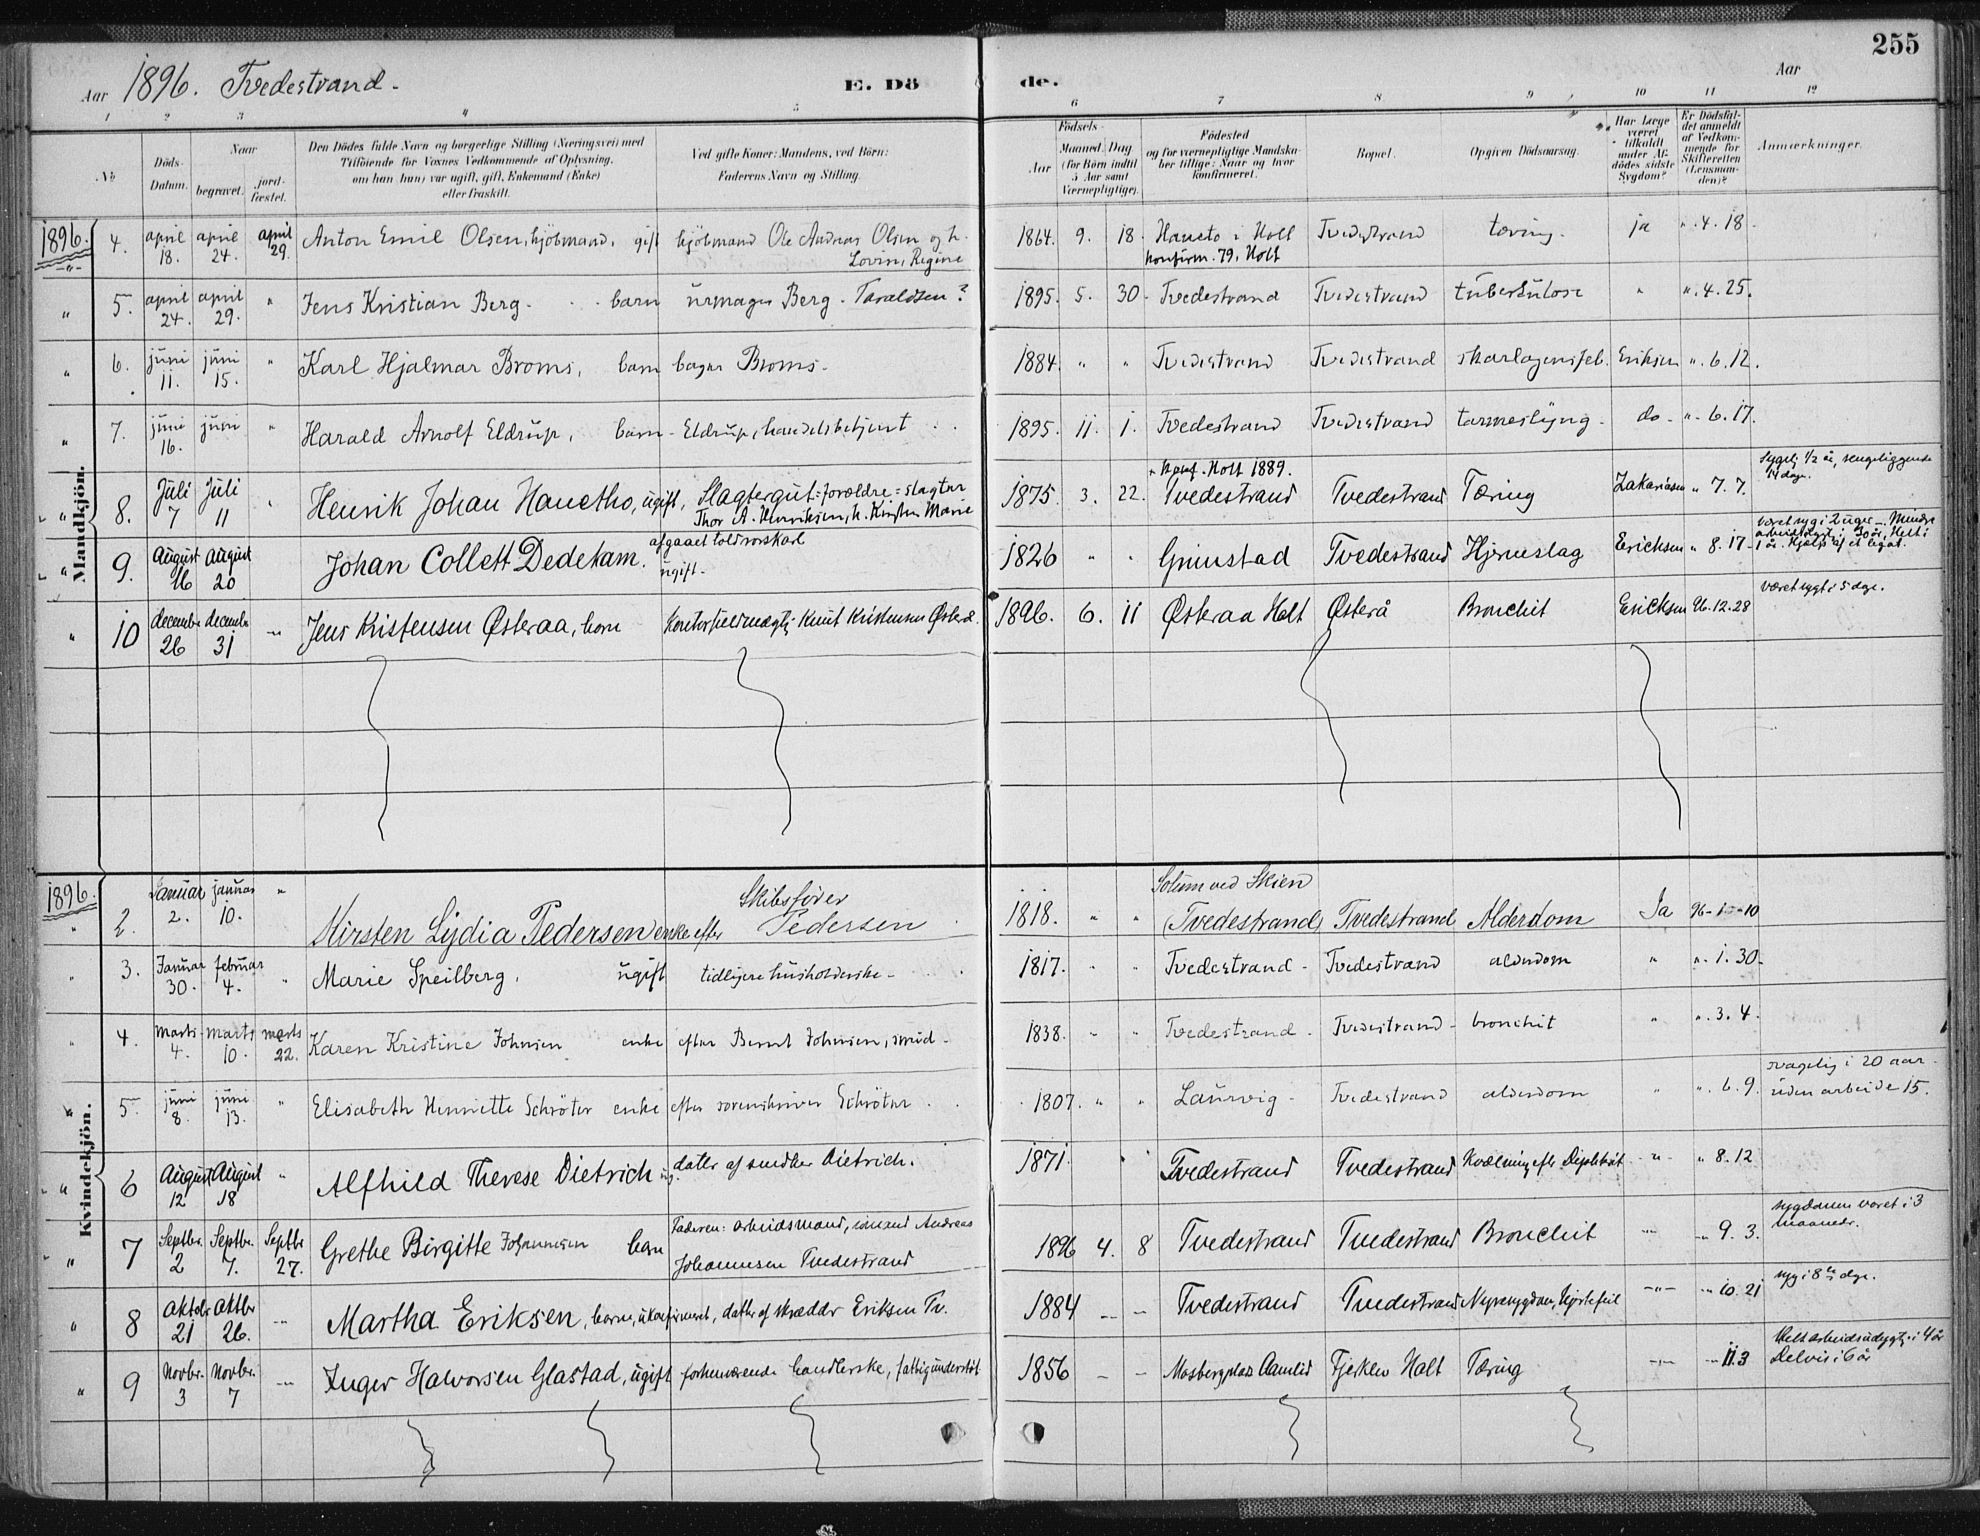 255
Aar 1896. Tvedestrand. E. Dö de. Aar
1 2 3 4 5 6 7 8 9 10 11 12
No
Döds-Datum.
Naar
begravet.
jord-fæstet.
Den Dödes fulde Navn og borgerlige Stilling (Næringsvei) med
Tilföiende for Voxnes Vedkommende af Oplysning,
om han (hun) var ugift, gift, Enkemand (Enke)
eller fraskilt.
Ved gifte Koner: Mandens, ved Börn:
Faderens Navn og Stilling.
Födsels-
Aar
Maaned. Dag
(for Börn indtil
5 Aar samt
Værnepligtige).
Födested
og for værnepligtige Mandska-
ber tillige: Naar og hvor
konfirmeret.
Bopæl.
Opgiven Dödsaarsag.
Har Læge
været
tilkaldt
under Af-
dödes sidste
Sygdom?
Er Dödsfal-
det anmeldt
af Vedkom-
mende for
Skifteretten
(Lensman-
den)?
Anmærkninger.
Mandkjön.
1896. 4. april 18. april 24. april 29. Anton Emil Olsen, kjöbmand, gift kjöbmand Ole Andreas Olsen og h. Lovin, Regine 1864. 9. 18. Haneto i Holt konfirm. 79, Holt Tvedestrand tæring. ja ". 4. 18.
" 5. april 24. april 29. " Jens Kristian Berg. barn urmager Berg. Taraldsen? 1895. 5. 30. Tvedestrand Tvedestrand tuberkulose " ". 4. 25.
" 6. juni 11. juni 15. " Karl Hjalmar Broms, barn bager Broms. 1884. " " Tvedestrand Tvedestrand skarlagensfeb. Eriksen ". 6. 12.
" 7. juni 16. juni " Harald Arnolf Eldrup, barn Eldrup, handelsbetjent 1895. 11. 1. Tvedestrand Tvedestrand tarmeslyng. do. ". 6. 17.
" " 8. Juli 7 Juli 11 " Henrik Johan Hanetho, ugift, Slagtergut: forældre = slagter Thor A. Henriksen, h. Kirsten Marie 1875 3. 22. + konf. Holt 1889. Tvedestrand Tvedestrand Tæring Zakariasen " 7. 7. Sygelig 1/2 år, sengeliggende 14 dage.
" " 9. August 16 August 20 Johan Collett Dedekam. afgaaet toldrorskarl ugift. 1826 " " Grimstad Tvedestrand Hjerneslag Ericksen " 8. 17. været syg i 2 uger. Mindre arbeidsdygtig i 30 år, Helt i 1 år. Hjelp af et legat.
" 10 december 26 december 31 " Jens Kristensen Østeraa, barn Kontorfuldmægtig Knut Kristensen Østerå. 1896. 6. 11 Østeraa Holt Østerå Bronchit Ericksen 96. 12. 28 Været sygt i 5 dge.
Kvindekjön.
1896. " 2. Januar 2. januar 10. " Kirsten Lydia Pedersen enke efter Skibsfører Pedersen 1818. " " Solum ved Skien (Tvedestrand) Tvedestrand Alderdom Ja 96-1-10
" 3. Januar 30. februar 4. " Marie Speilberg, ugift tidligere husholderske. 1817. " " Tvedestrand. Tvedestrand alderdom " ". 1. 30.
" 4. marts 4. marts 10. marts 22. Karen Kristine Johnsen enke efter Bernt Johnsen, smed. 1838. " " Tvedestrand. Tvedestrand. bronchit " ". 3. 4.
" 5. juni 8. juni 13. " Elisabeth Henriette Schröter enke efter sorenskriver Schröter 1807. " " Laurvig. Tvedestrand alderdom " ". 6. 9. svagelig i 20 aar. uden arbeide 15.
" " 6 August 12 August 18 " Alfhild Therese Dietrich ug. datter af snedker Dietrich. 1871. Tvedestrand Tvedestrand Kvælning efter Difterit " " 8. 12
" " 7 Septbr. 2 Septbr. 7. Septbr 27. Grethe Birgitte Johannesen barn Faderen: arbeidsmand, sömand Andreas Johannesen Tvedestrand 1896 4. 8 Tvedestrand Tvedestrand Bronchit " " 9. 3. sygdommen varet i 3 maaneder.
" 8 Oktobr 21 Oktbr 26. " Martha Eriksen, barn, ukonfirmeret, datter af skrædder Eriksen Tv. 1884 " " Tvedestrand Tvedestrand Nyresygdom, Hjertefeil " " 10. 21 syg i 8te dge.
" 9 Novbr. 3 Novbr. 7 " Inger Halvorsen Glastad, ugift forhenværende handlerske, fattigunderstöt 1856 " " Mosbergplads Aamlid Fjerkleu Holt Tæring " " 11. 3 Helt arbeidsudygtig i 4 år Delvis i 6 år